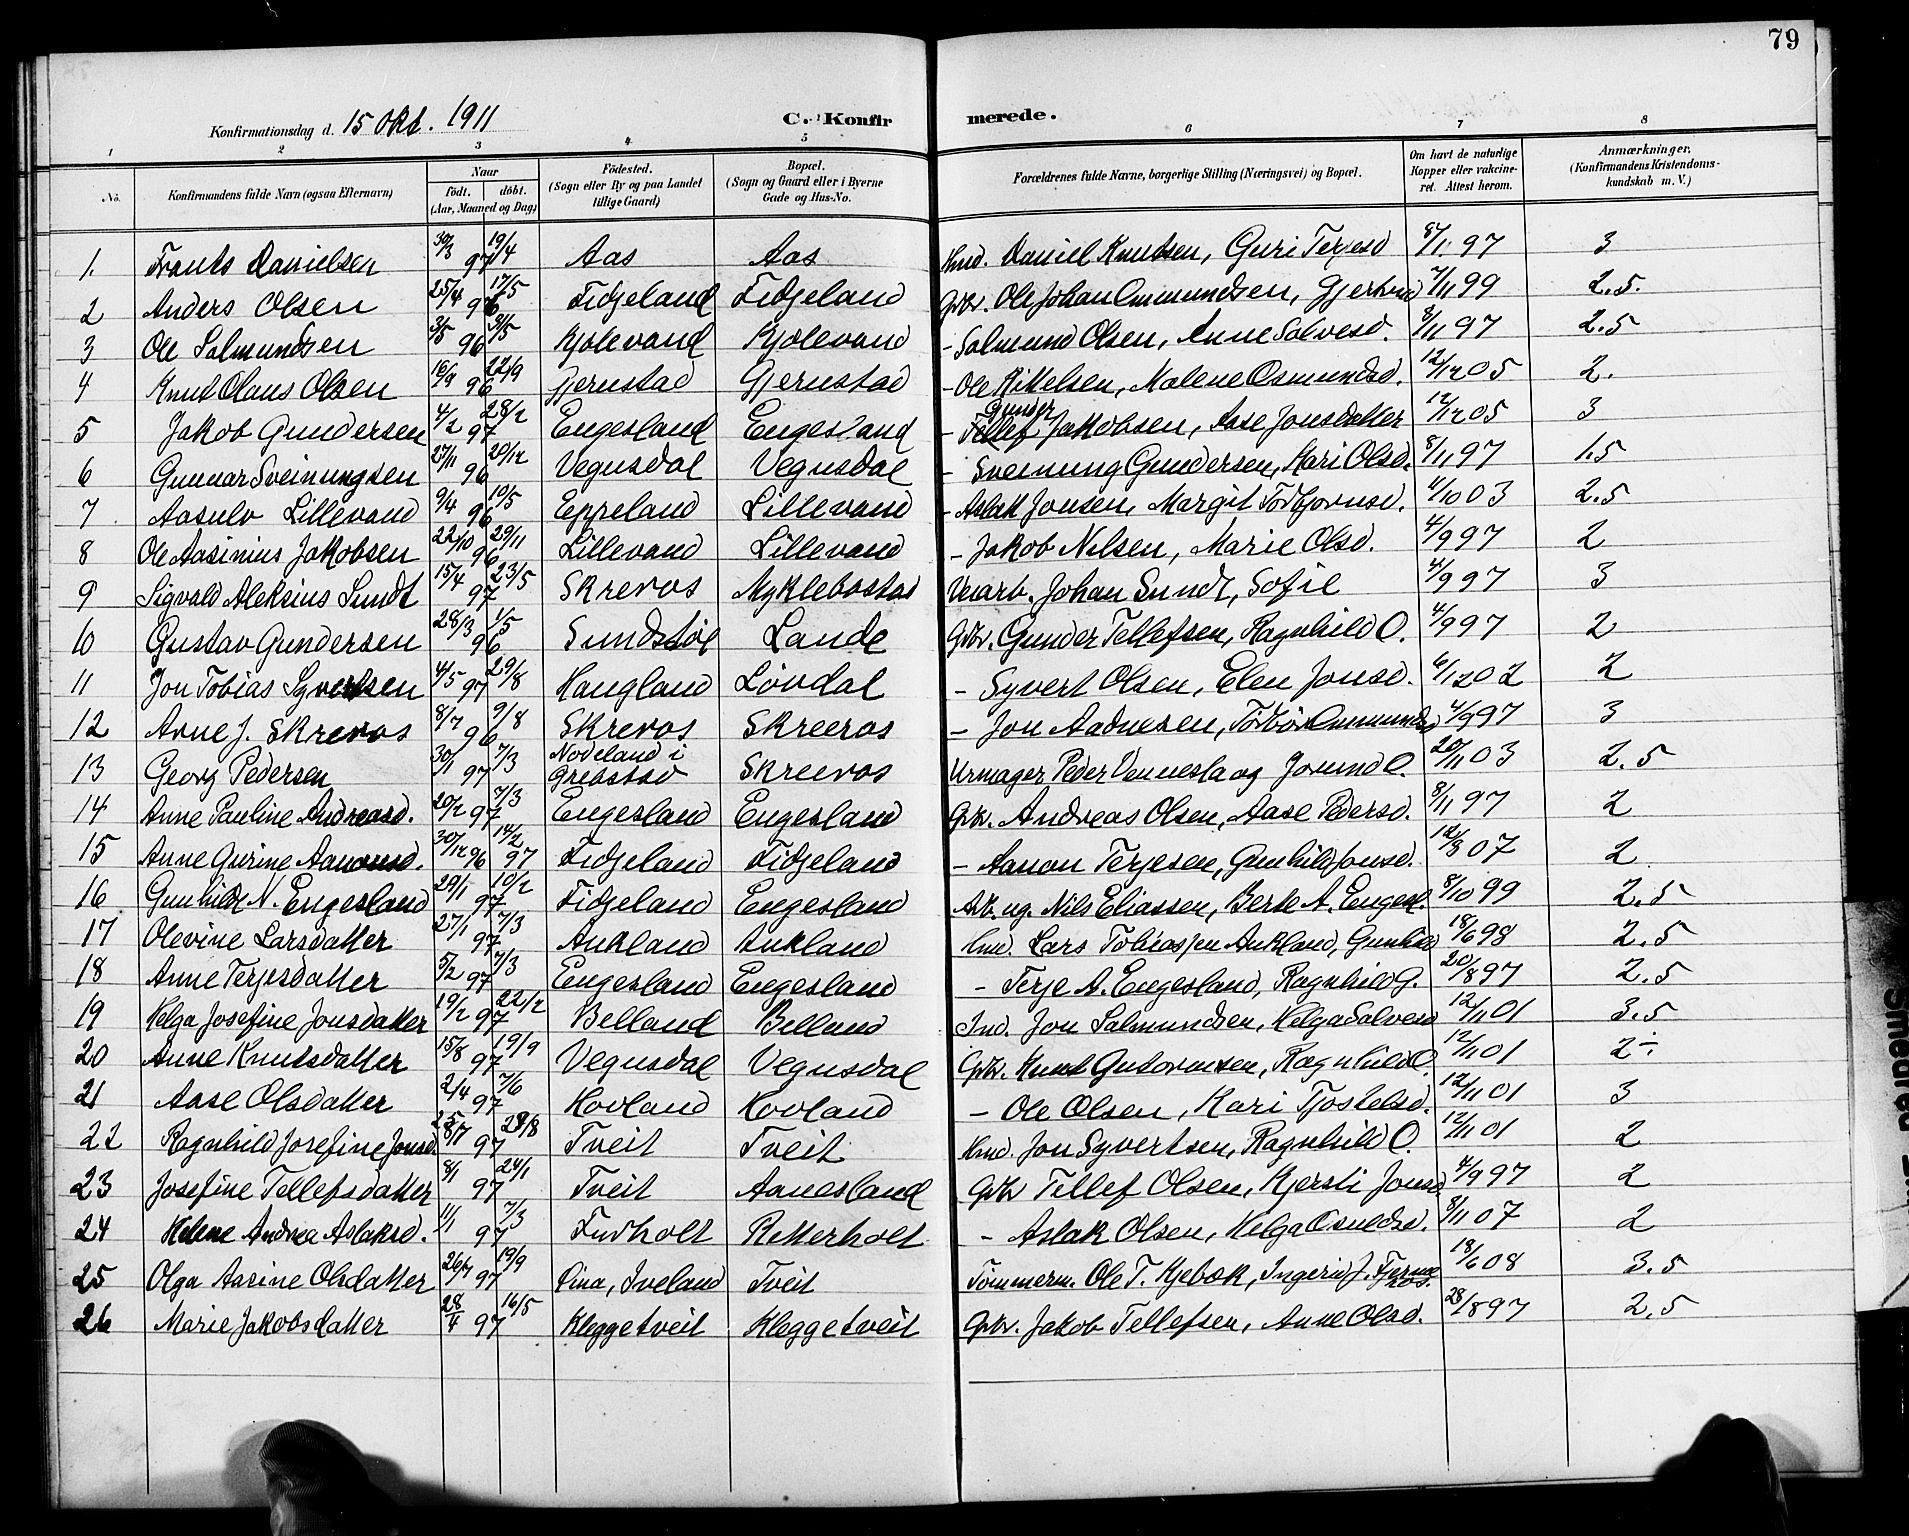 79
Konfirmationsdag d. 15 Okt. 1911 C. Konfirmerede.
1 2 3 4 5 6 7 8
No. Konfirmandens fulde Navn (ogsaa Efternavn) Naar født. døbt. (Aar, Maaned og Dag) Fødested. (Sogn eller By og paa Landet tillige Gaard) Bopæl. (Sogn og Gaard eller i Byerne Gade og Hus-No. Forældrenes fulde Navne, borgerlige Stilling (Næringsvei) og Bopæl. Om havt de naturlige Kopper eller vakcineret. Attest herom. Anmærkninger. (Konfirmandens Kristendomskundskab m. V.)
1. Frants Danielsen 30/3 97 19/4 Aas Aas Hmd. Daniel Knutsen, Guri Terjesd 8/1 97 3
2 Anders Olsen 25/4 96 17/5 Fidjeland Fidjeland Grbr. Ole Johan Ommundsen, Gjertru 7/11 99 2.5.
3 Ole Salmundsen 3/5 96 9/5 Kjølevand Kjølevand - Salmund Olsen, Anne Salvesd. 8/11 97 2.5
4 Knut Olaus Olsen 16/9 96 27/9 Gjerustad Gjerustad - Ole Kittelsen, Malene Osmundsd. 12/12 05 2.
5 Jakob Gundersen 4/2 97 28/2 Engesland Engesland - Gunder Tellef Jakobsen, Aase Jonsdatter 12/12 05 3
6 Gunnar Sveinungsen 27/11 96 20/12 Vegusdal Vegusdal - Sveinung Gundersen, Kari Olsd. 8/11 97 1.5
7 Aasulv Lillevand 9/4 96 10/5 Eppeland Lillevand - Aslak Jonsen, Margit Torbjørnsd. 4/10 03 2.5
8 Ole Aasinius Jakobsen 22/10 96 29/11 Lillevand Lillevand - Jakob Nilsen, Marie Olsd. 4/9 97 2
9 Sigvald Aleksius Sundt 15/4 97 23/5 Skreros Myklebostad Veiarb. Johan Sundt, Sofie 4/9 97 3
10 Gustav Gundersen 28/3 96 1/5 Sundstøl Lande Grbr. Gunder Tellefsen, Ragnhild O. 4/9 97 2
11 Jon Tobias Syvertsen 4/5 97 29/8 Haugland Løvdal - Syvert Olsen, Elen Jonsd. 6/12 02 2
12 Arne J. Skreros 8/7 96 9/8 Skreros Skreeros - Jon Aadnesen, Torbør Ommundsd 4/9 97 3
13 Georg Pedersen 30/1 97 7/3 Nodeland i Grebstad Skreeros Urmager Peder Vennesla og Jorund O. 20/11 03 2.5
14 Anne Pauline Andreasd. 20/2 97 7/3 Engesland Engesland Grbr. Andreas Olsen, Aase Pedersd. 8/11 97 2
15 Anne Gurine Aanonsd. 30/12 96 14/2 97 Fidjeland Fidjeland - Aanon Terjesen, Gunhild Jonsd. 12/8 07 2
16 Gunhild N. Engesland 29/1 97 10/2 Fidjeland Engesland Arb. ug. Nils Eliassen, Berte A. Engesl. 8/10 99 2.5
17 Olevine Larsdatter 27/1 97 7/3 Aukland Aukland Hmd. Lars Tobiassen Aukland, Gunhild 18/6 98 2.5
18 Anne Terjesdatter 5/2 97 7/3 Engesland Engesland - Terje A. Engesland, Ragnhild G. 20/8 97 2.5
19 Helga Josefine Jonsdatter 19/2 97 22/2 Belland Belland Ind. Jon Salmundsen, Helga Salvesd 12/11 01 3.5
20 Anne Knutsdatter 15/8 97 19/9 Vegusdal Vegusdal Grbr. Knut Gutormsen, Ragnhild O. 12/11 01 2÷
21 Aase Olsdatter 2/4 97 7/6 Hovland Hovland - Ole Olsen, Kari Tjostelsd. 12/11 01 3
22 Ragnhild Josefine Jonsd. 25/7 97 29/8 Tveit Tveit Hmd. Jon Syvertsen, Ragnhild O. 12/11 01 2
23 Josefine Tellefsdatter 8/1 97 24/1 Tveit Aanesland Grbr Tellef Olsen, Kjersti Jonsd 4/9 97 2
24 Helene Andrea Aslaksd. 11/1 97 7/3 Furholt Retterholt - Aslak Olsen, Helga Osuldsd. 8/11 07 2
25 Olga Aasine Olsdatter 26/7 97 19/9 Iveland Tveit Tømmerm. Ole T. Kjebæk, Ingerid J. 18/6 08 3.5
26 Marie Jakobsdatter 28/4 97 16/5 Kleggetveit Kleggetveit Grbr. Jakob Tellefsen, Anne Olsd. 28/8 97 2.5